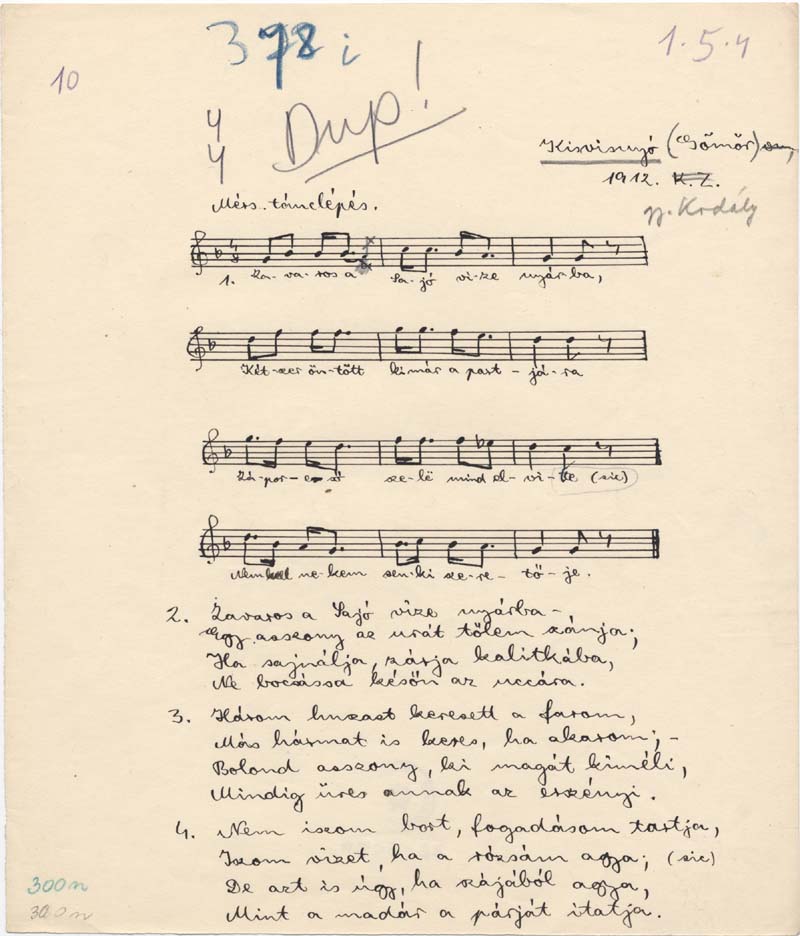 378 i
1.5.4
10
4
4
Dup!
Kisvisnyó (Gömör)
1912. K. Z.
gy. Kodály
Mérs. tánclépés.
1. Za-va-ros a Sa-jó vi-ze nyár-ba,
Két-szer ön-tött ki már a part-já-ra
Zá-por-e-ső sze-lé mind el-vi-te (sic)
Nem kell ne-kem sen-ki sze-re-tő-je.
2. Zavaros a Sajó vize nyárba-,
Egy asszony az urát tőlem szánja;
Ha sajnálja, zárja kalitkába,
Ne bocsássa későn az uccára.
3. Három huzast keresett a farom,
Más hármat is keres, ha akarom; -
Bolond asszony, ki magát kiméli,
Mindig üres annak az erszényi.
4. Nem iszom bort, fogadásom tartja,
Iszom vizet, ha a rózsám agya; (sic)
De azt is úgy, ha szájából agya,
Mint a madár a párját itatja.
300n
300n